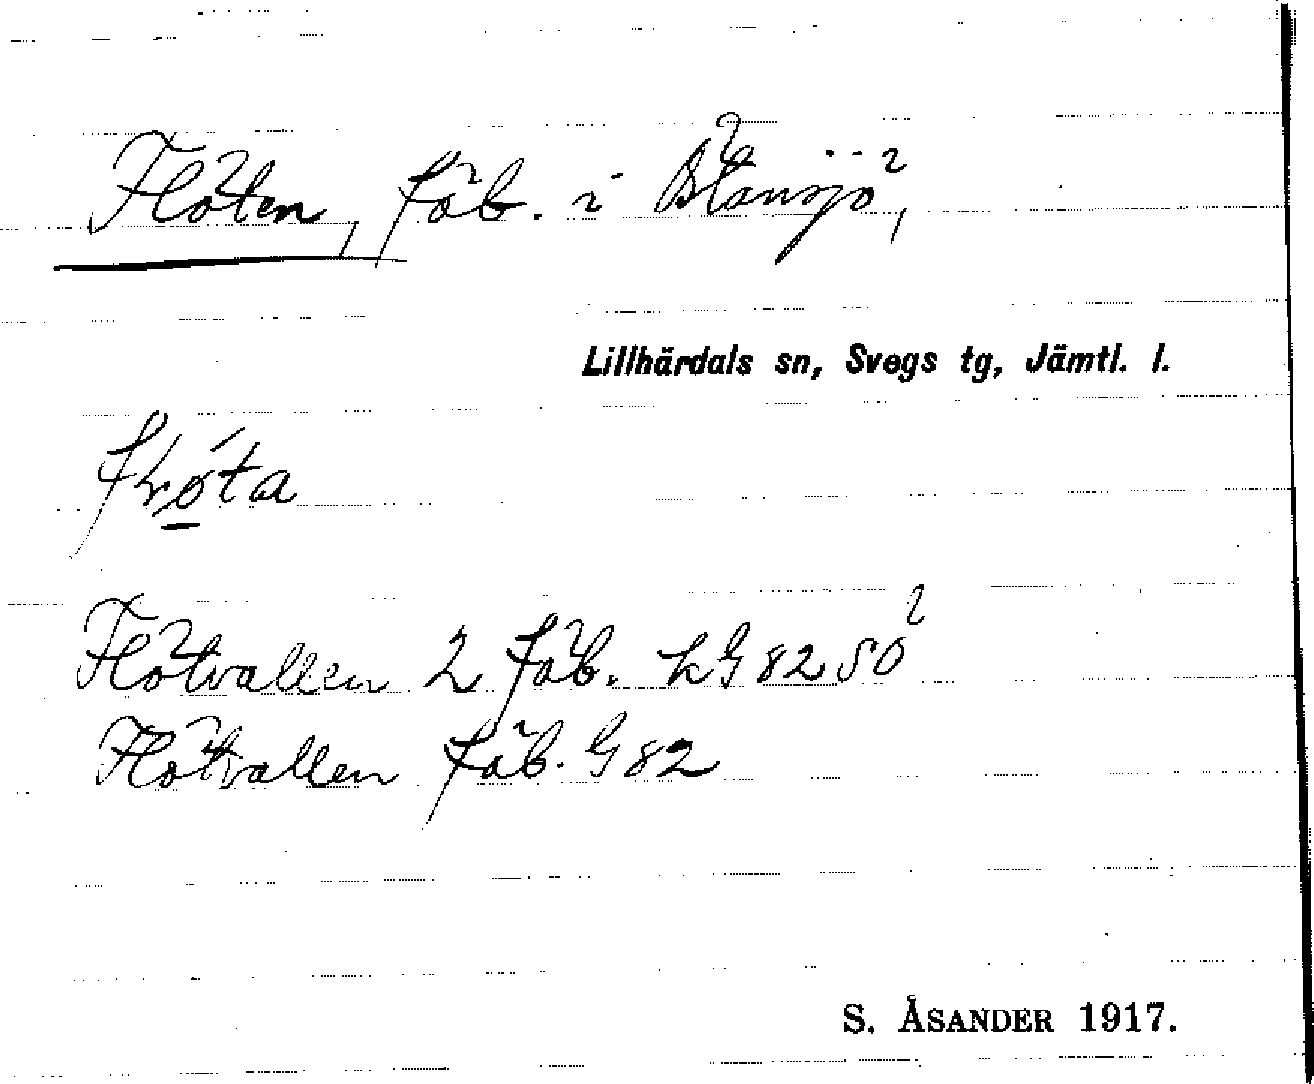 Flöten, fäb. i Östansjö,
Lillhärdals sn, Svegs tg, Jämtl. l.
fɽǿ̱ta
Flötvallen 2 fäb. kG 82 SÖ
Flötvallen fäb. G 82
S. ÅSANDER 1917.